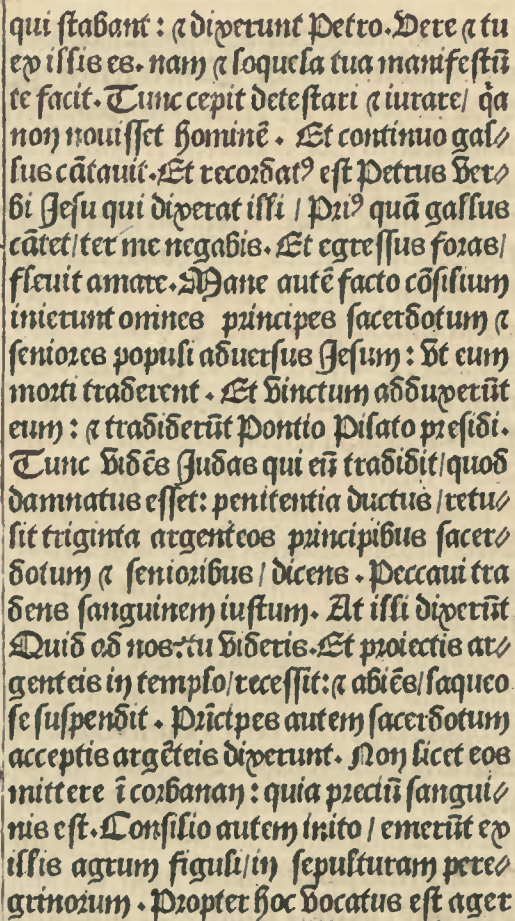 qui stabant : ⁊ dixerunt Petro. Vere ⁊ tu
ex illis es. nam ⁊ loquela tua manifestū
te facit. Tunc cepit detestari ⁊ iurare/ q̇a
non nouisset hominē. Et continuo gal⸗
lus cātauit. Et recordatꝰ est Petrus ver⸗
bi Jesu qui dixerat illi / Priꝰ quā gallus
cātet/ ter me negabis. Et egressus foras/
fleuit amare. Mane autē facto cōsilium
inierunt omnes principes sacerdotum ⁊
seniores populi aduersus Jesum : vt eum
morti traderent. Et vinctum adduxerūt
eum : ⁊ tradiderūt Pontio Pilato presidi.
Tunc vidēs Judas qui eū tradidit/ quod
damnatus esset: penitentia ductus / retu⸗
lit triginta argenteos principibus sacer⸗
dotum ⁊ senioribus / dicens. Peccaui tra
dens sanguinem iustum. At illi dixerūt
Quid ad nos: tu videris. Et proiectis ar⸗
genteis in templo/ recessit: ⁊ abiēs/ laqueo
se suspendit. Prīcipes autem sacerdotum
acceptis argēteis dixerunt. Non licet eos
mittere ī corbanan : quia preciū sangui⸗
nis est. Consilio autem inito / emerūt ex
illis agrum figuli/ in sepulturam pere⸗
grinorum. Propter hoc vocatus est ager